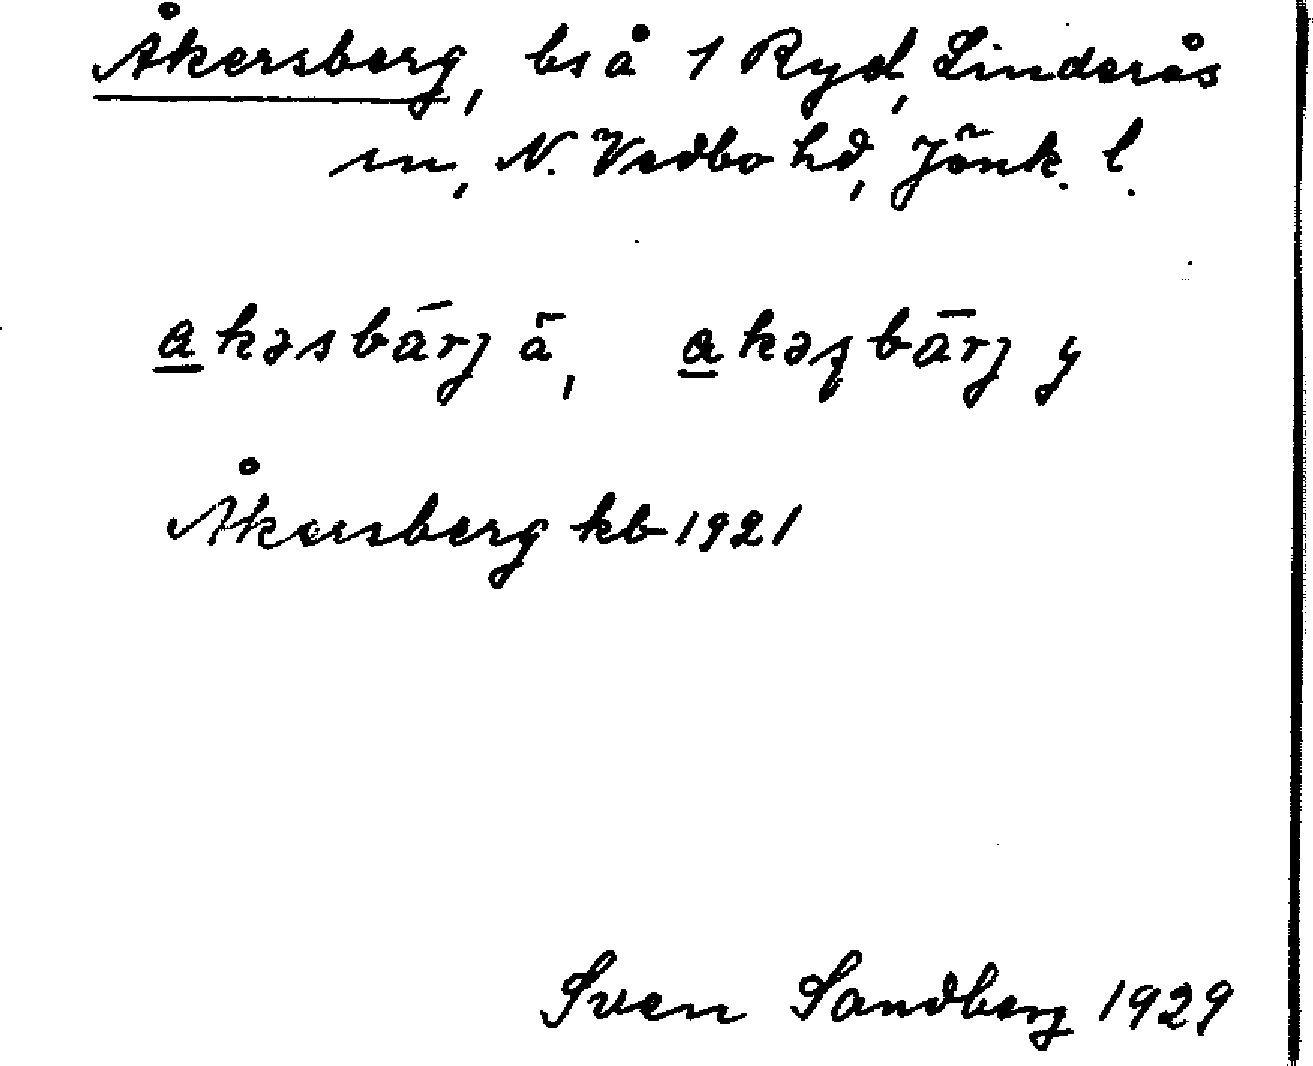 Åkersberg, bs å 1 Ryd, Linderås
sn, N. Vedbo hd, Jönk. l.
a̲kəsbärj ä, a̲kəʂbärj y
Åkersberg kb 1921
Sven Sandberg 1929